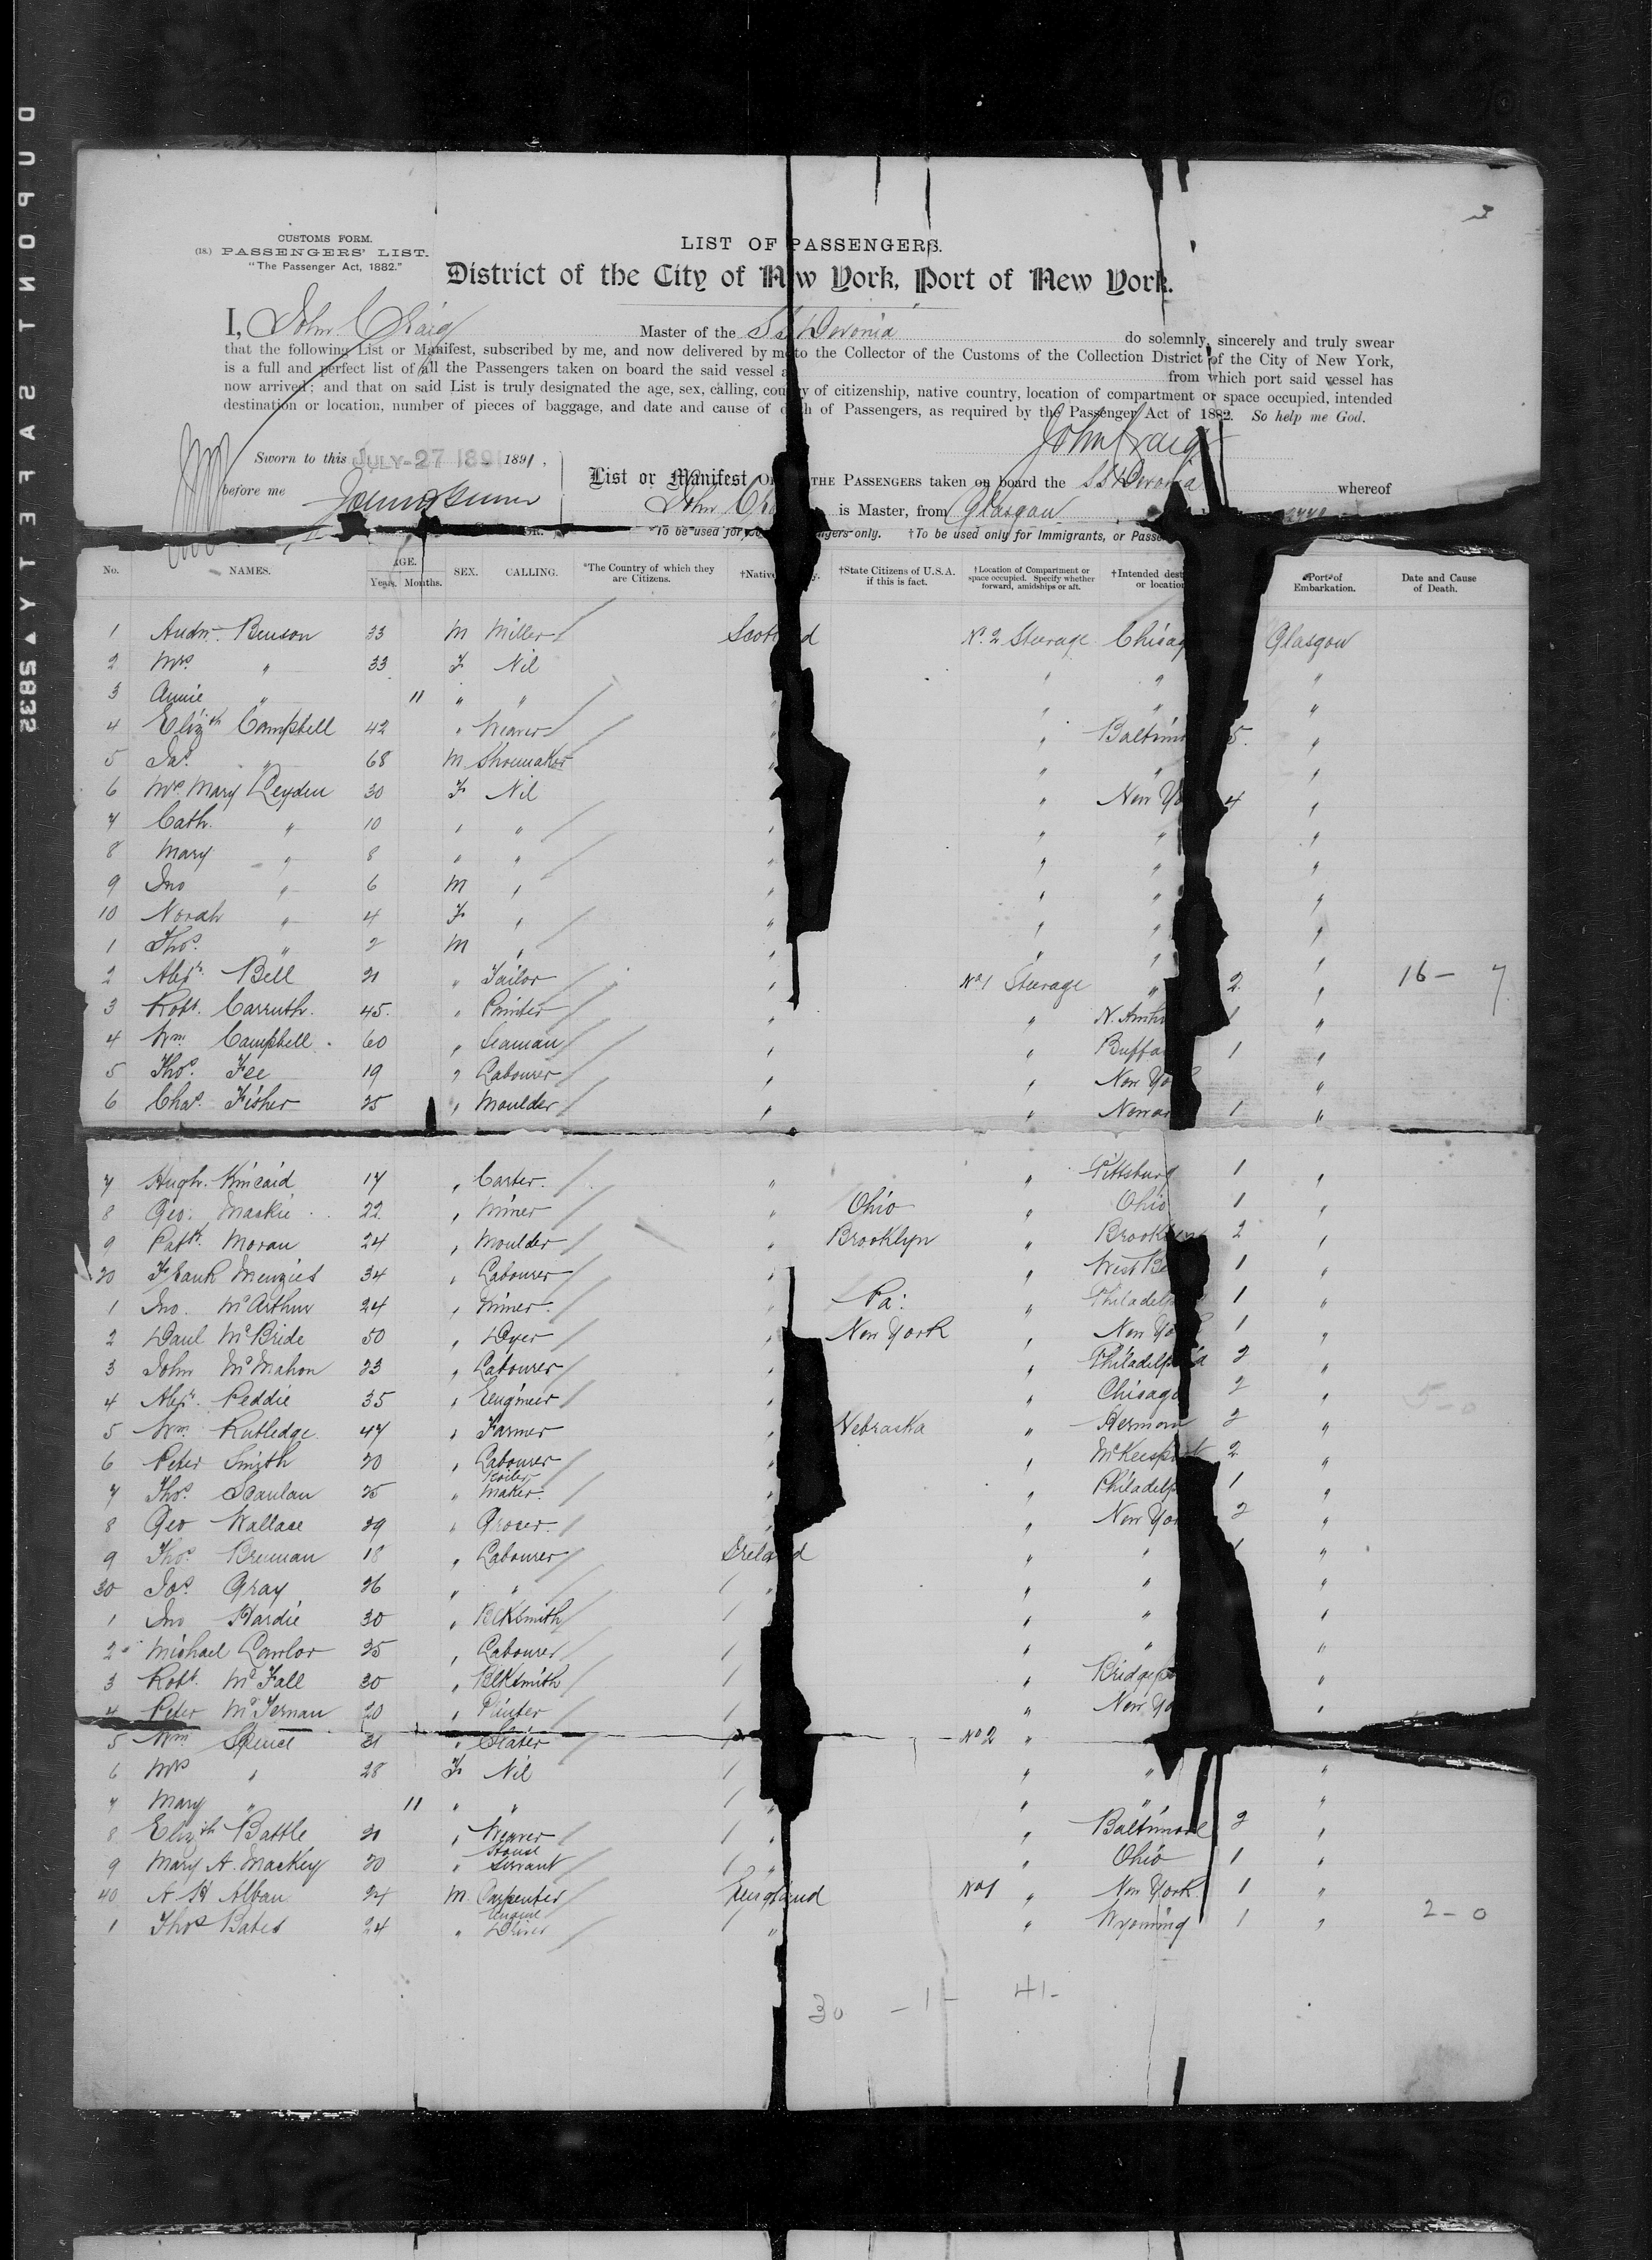 DUPONT SAFETY ▲ S832
3
CUSTOMS FORM.
(18.) PASSENGERS' LIST.
"The Passenger Act, 1882."
LIST OF PASSENGERS.
District of the City of New York, Port of New York.
I, John Craig Master of the SS Devonia do solemnly, sincerely and truly swear
that the following List or Manifest, subscribed by me, and now delivered by me to the Collector of the Customs of the Collection District of the City of New York,
is a full and perfect list of all the Passengers taken on board the said vessel a from which port said vessel has
now arrived; and that on said List is truly designated the age, sex, calling, country of citizenship, native country, location of compartment or space occupied, intended
destination or location, number of pieces of baggage, and date and cause of death of Passengers, as required by the Passenger Act of 1882. So help me God.
John Craig
Sworn to this JULY 27 1891 1891,
before me
List or Manifest OF THE PASSENGERS taken on board the SS Devonia whereof
John Craig is Master, from Glasgow
*To be used for Passengers only. †To be used only for Immigrants, or Passe
No. NAMES. AGE. Years. Months. SEX. CALLING. *The Country of which they are Citizens. †Native †State Citizens of U.S.A. if this is fact. †Location of Compartment or space occupied. Specify whether forward, amidships or aft. †Intended dest or location Port of Embarkation. Date and Cause of Death.
1 Andw. Benson 33 M Miller Scotland No. 2 Steerage Chicag Glasgow
2 Mrs " 33 F Nil " " "
3 Annie " 11 " " " " "
4 Elizth Campbell 42 " Weaver " " Baltimo 5. "
5 Jas. " 68 M Shoemaker " " " "
6 Mrs. Mary Leyden 30 F Nil " " New Yo 4 "
7 Cath. " 10 " " " " " "
8 Mary " 8 " " " " " "
9 Jno " 6 M " " " " "
10 Norah " 4 F " " " " "
1 Thos. " 2 M " " " "
2 Alexr. Bell 21 " Tailor " No 1 Steerage " 2 " 16 - 7
3 Robt. Carruth. 45. " Painter " " N. Amh 1 "
4 Wm. Campbell. 60 " Seaman " " Buffa 1 "
5 Thos. Fee 19 " Labourer " " New Yo "
6 Chas. Fisher 25 " Moulder " " Newar 1 "
7 Hugh. Kincaid 17 " Carter. " " Pittsburg 1 "
8 Geo. Mackie 22 " Miner " Ohio " Ohio 1 "
9 Patk. Moran 24 " Moulder " Brooklyn " Brooklyn 2 "
20 Frank Menzies 34 " Labourer " " West Be 1 "
1 Jno. McArthur 24 " Miner. " Pa: " Philadelp 1 "
2 Danl McBride 50 " Dyer " New York " New Yo 1 "
3 John McMahon 23 " Labourer " Philadelphia 2 "
4 Alexr. Peddie 35 " Engineer " Chicago 2 " 5-0
5 Wm. Rutledge 47 " Farmer " Nebraska " Hermon 2 "
6 Peter Smith 20 " Labourer " " McKeesport 2 "
7 Thos. Scanlan 25 " Boiler Maker. " " Philadelp 1 "
8 Geo Wallace 29 " Grocer. " " New Yor 2 "
9 Thos. Brennan 18 " Labourer Ireland " " "
30 Jos. Gray 26 " " " " " "
1 Jno Hardie 30 " Blksmith " " "
2 Michael Lawlor 25 " Labourer " " "
3 Robt. McFall 30 " Blksmith " Bridgep "
4 Peter McTernan 20 " Painter " New Yo "
5 Wm Spence 31 " Slater No 2 "
6 Mrs " 28 F Nil " " "
7 Mary " 11 " " " " " "
8 Elizth Battle 21 " Weaver " " Baltimore 2 "
9 Mary A. Mackey 20 " House Servant " " Ohio 1 "
40 A H Alban 24 M. Carpenter England No 1 " New York 1 "
1 Thos Bates 24 " Engine Driver " " Wyoming 1 " 2-0
30 -1- 41-